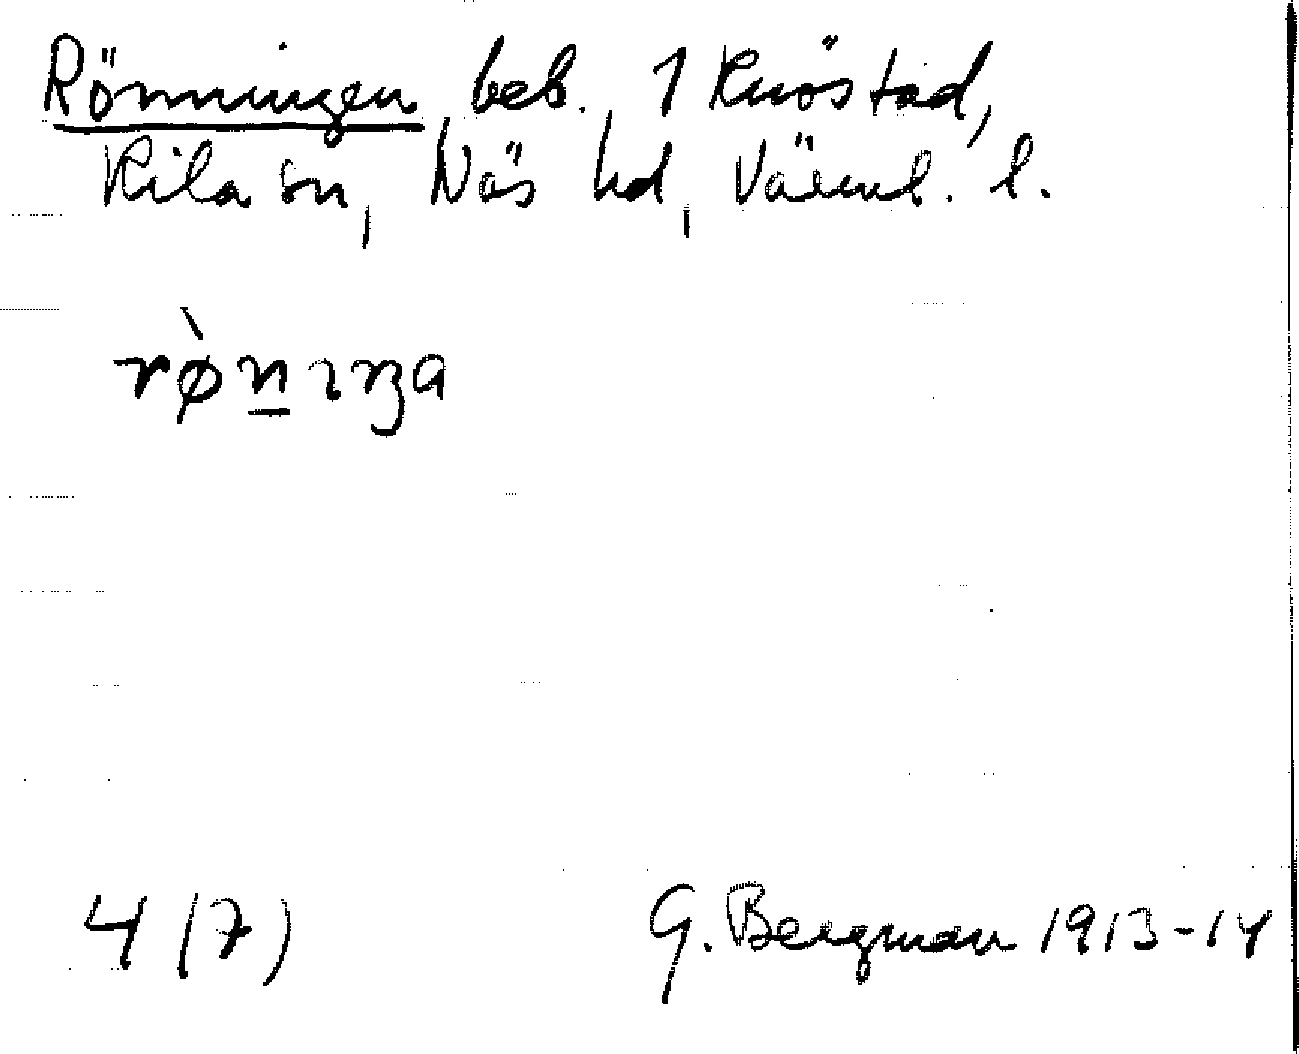 Rönningen, beb. 1 Knöstad,
Kila sn, Näs hd, Värml. l.
rø̀n̲ɩŋa
4 (7)
G. Bergman 1913-14